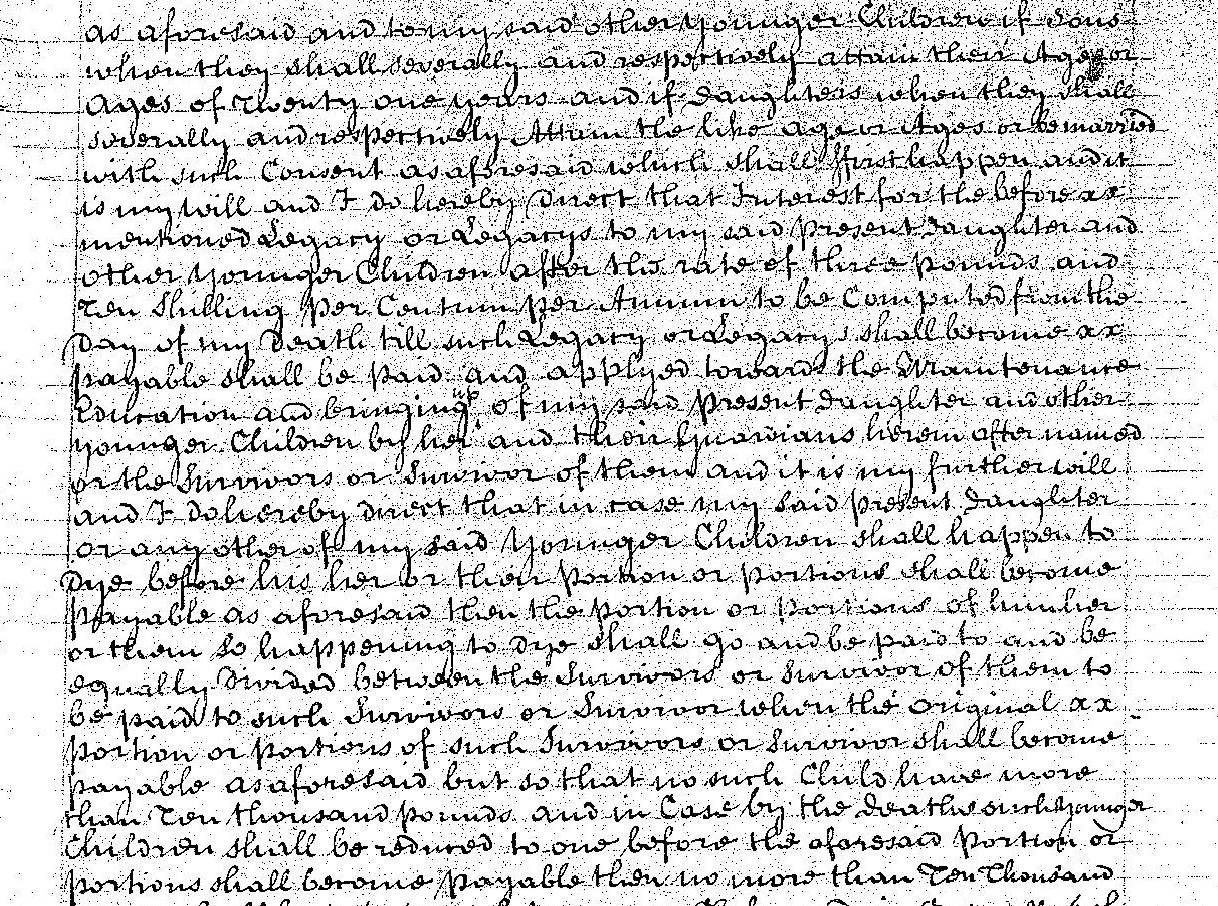 as aforesaid and to my said other younger Children if Sons
when they shall severally and respectively attain their Age or
Ages of Twenty one years and if Daughters when they shall
severally and respectively Attain the like age or Ages or be married
with such Consent as aforesaid which shall ffirst happen and it
is my will and I do hereby Direct that Interest for the before xx
mentioned Legacy or Legacys to my said Present Daughter and
other younger Children after the rate of three pounds and
Ten Shilling Per Centum per Annum to be Computed from the
Day of my Death till such Legacy or Legacys shall become xx
payable shall be paid and applyed towards the Maintenance
Education and bringing up of my said present Daughter and other
younger Children by her and their Guardians herein after named
or the Survivors or Survivor of them and it is my further will
and I do hereby direct that in case my said present Daughter
or any other of my said younger Children shall happen to
Dye before his her or their portion or portions shall become
payable as aforesaid then the portion or portions of him her
or them so happening to Dye shall go and be paid to and be
equally Divided between the Survivors or Survivor of them to
be paid to such Survivors or Survivor when the original xx
portion or portions of such Survivors or Survivor shall become
payable as aforesaid but so that no such Child have more
than Ten thousand pounds and in Case by the Deaths such younger
Children shall be reduced to one before the aforesaid portion or
portions shall become payable then no more than Ten Thousand